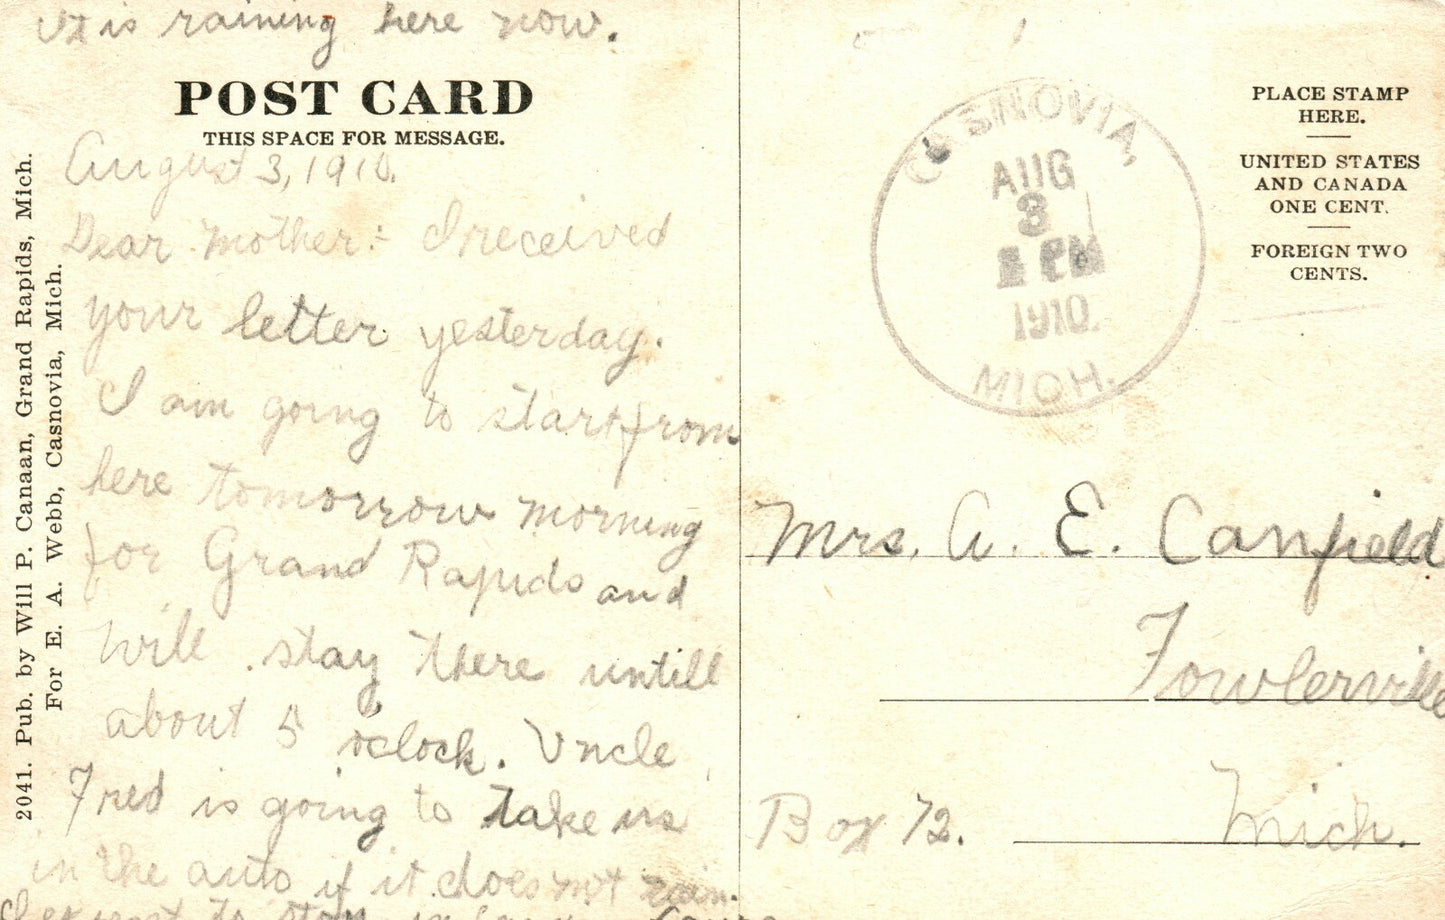 It is raining here now.
POST CARD
THIS SPACE FOR MESSAGE.
August 3, 1910.
Dear Mother:- I received
your letter yesterday.
I am going to start from
here tomorrow morning
for Grand Rapids and
will stay there untill
about 5 oclock. Uncle
Fred is going to take us
in the auto if it does not rain.
I expect to stop in
2041. Pub. by Will P. Canaan, Grand Rapids, Mich.
For E. A. Webb, Casnovia, Mich.
CASNOVIA,
AUG
3
PM
1910
MICH.
PLACE STAMP
HERE.
UNITED STATES
AND CANADA
ONE CENT.
FOREIGN TWO
CENTS.
Mrs. A. E. Canfield
Fowlerville
Box 72. Mich.